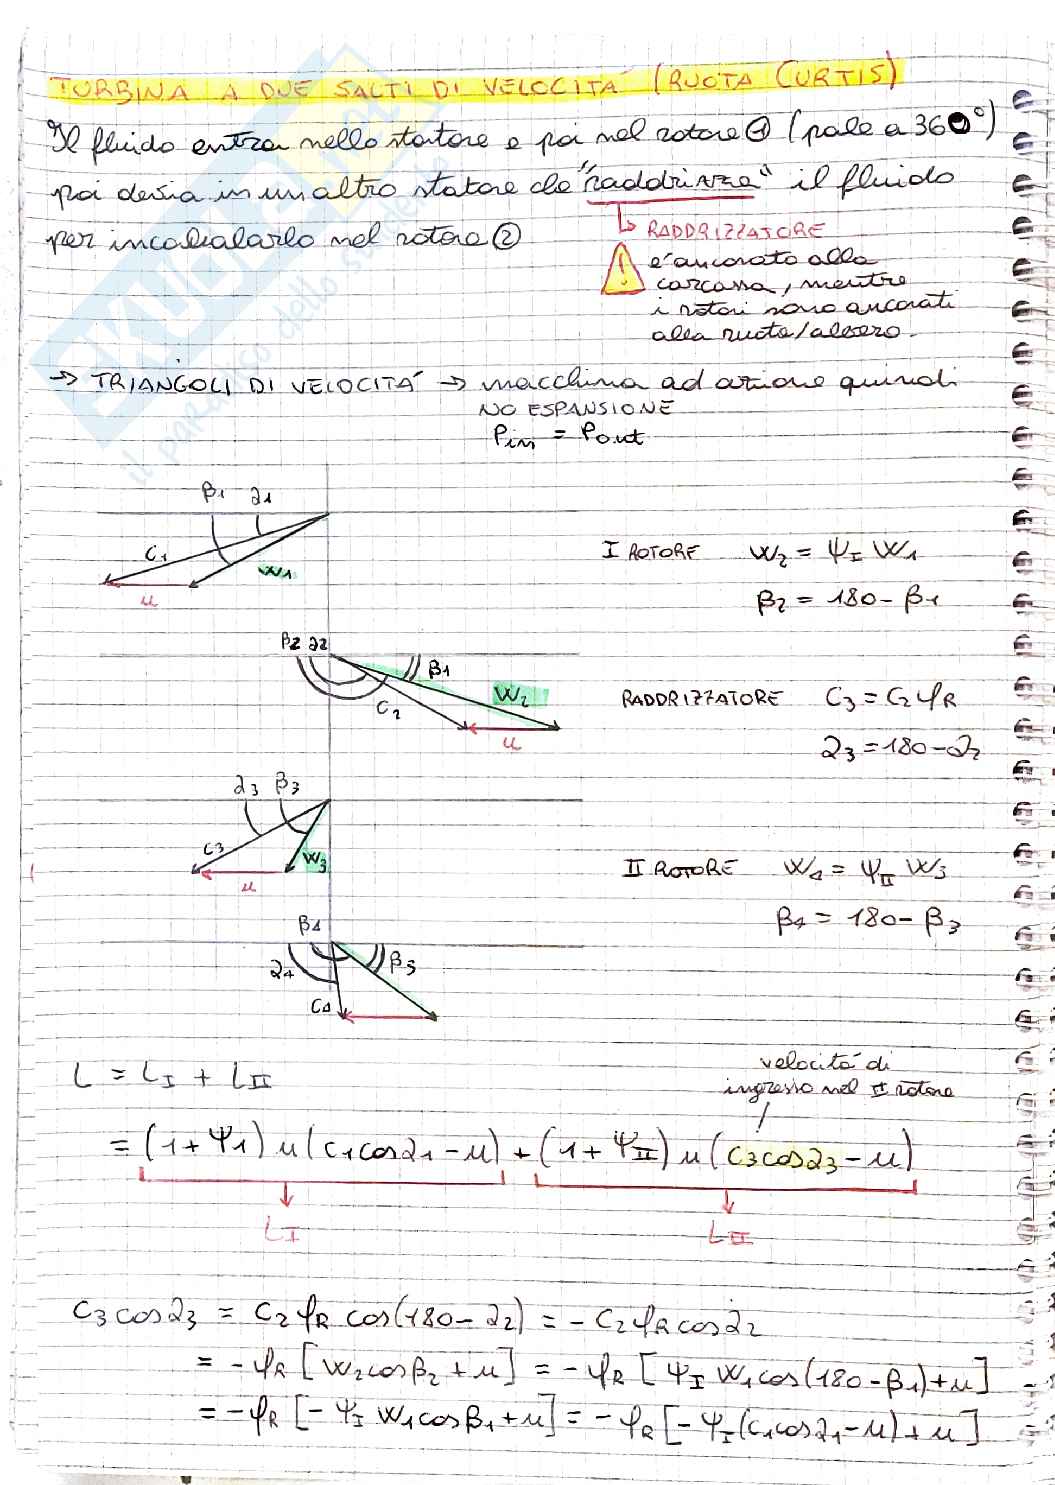 TURBINA A DUE SALTI DI VELOCITÀ (RUOTA CURTIS)
Il fluido entra nello statore e poi nel rotore ① (pale a 360°)
poi devia in un altro statore che "raddrizza" il fluido
per incanalarlo nel rotore ②
↳ RADDRIZZATORE
è ancorato alla
carcassa, mentre
i rotori sono ancorati
alla ruota/albero.
→ TRIANGOLI DI VELOCITÀ → macchina ad azione quindi
NO ESPANSIONE
Pin = Pout
β1 α1
C1
W1
u
I ROTORE W2 = ΨI W1
β2 = 180 - β1
β2 α2
β1
W2
C2
u
RADDRIZZATORE C3 = C2 φR
α3 = 180 - α2
α3 β3
C3
W3
u
II ROTORE W4 = ΨII W3
β4 = 180 - β3
β4
α4
β3
C4
L = LI + LII
velocità di
ingresso nel II rotore
= (1 + Ψ1) u (C1cosα1 - u) + (1 + ΨII) u (C3cosα3 - u)
LI
LII
C3 cosα3 = C2 φR cos(180 - α2) = - C2 φR cosα2
= - φR [W2 cosβ2 + u] = - φR [ΨI W1 cos(180 - β1) + u]
= - φR [- ΨI W1 cosβ1 + u] = - φR [- ΨI (C1cosα1 - u) + u]